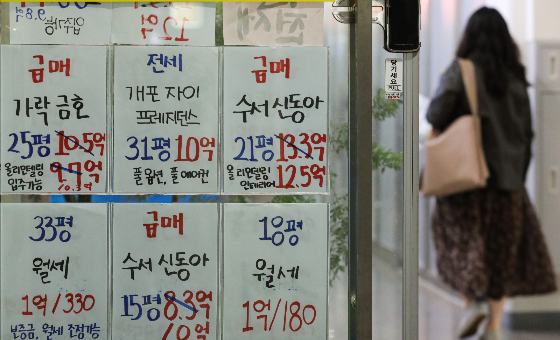 9.8억
입주가능
12억
급매
가락 금호
25평 10.5억
9.7억
올리모델링
입주가능
전세
개포 자이
프레지던스
31평 10억
풀옵션, 풀에어컨
급매
수서 신동아
21평 13.3억
올리모델링 12.5억
인테리어
당기세요
PULL
33평
월세
1억/330
보증금, 월세 조정가능
급매
수서 신동아
15평 8.3억
18평
월세
1억/180